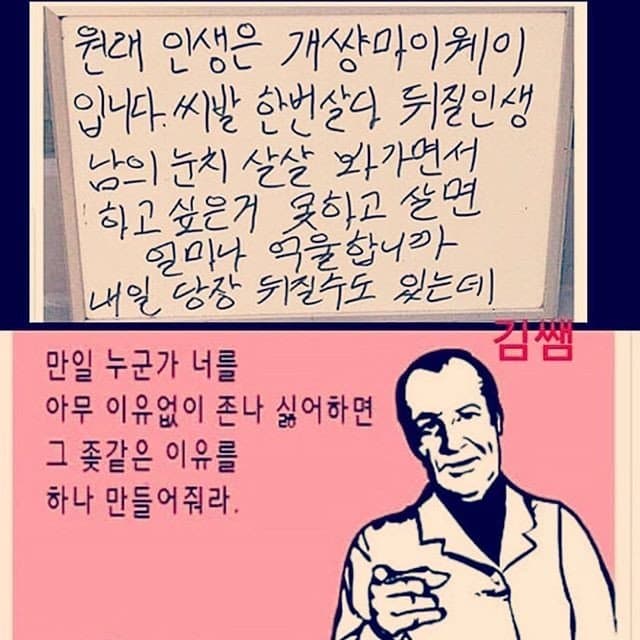 원래 인생은 개썅마이웨이
입니다. 씨발 한번살다 뒤질인생
남의 눈치 살살 봐가면서
하고 싶은거 못하고 살면
얼마나 억울합니까
내일 당장 뒤질수도 있는데
김쌤
만일 누군가 너를
아무 이유없이 존나 싫어하면
그 좆같은 이유를
하나 만들어줘라.